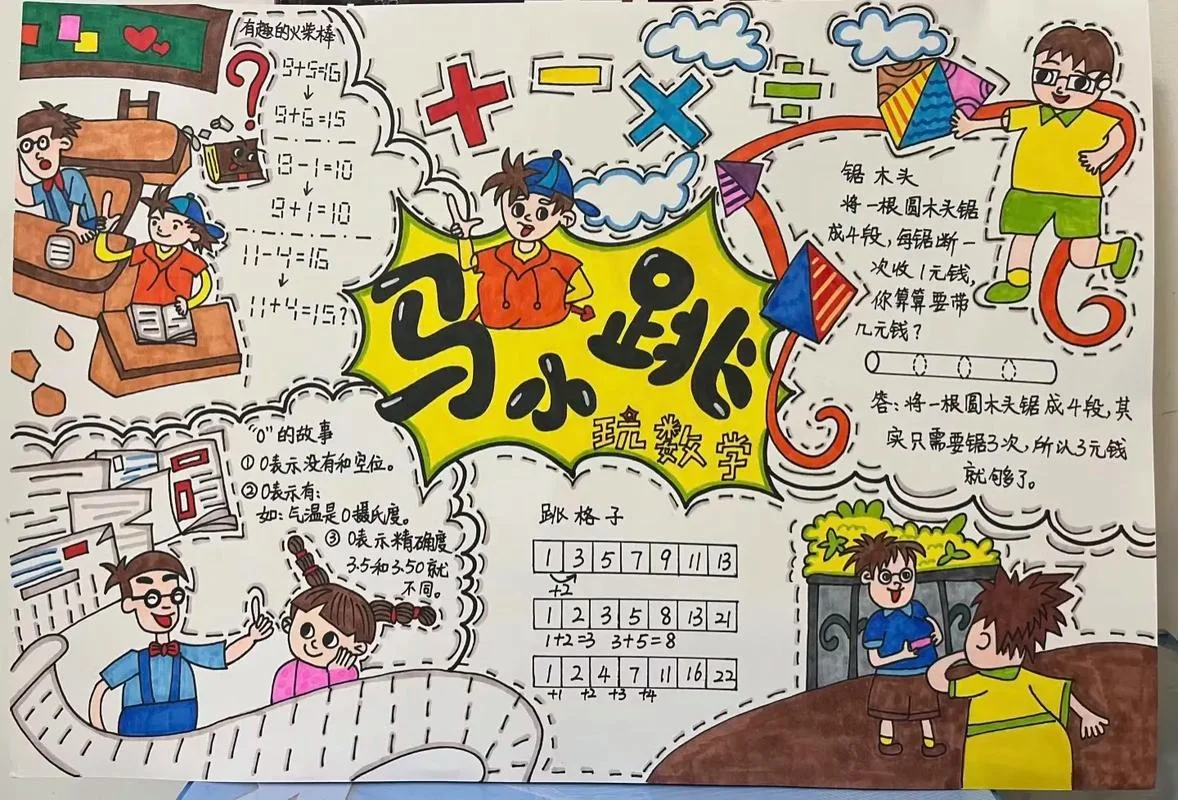 有趣的火柴棒
9+5=16
↓
9+6=15
13-1=10
↓
9+1=10
11-4=16
↓
11+4=15?
+ - × ÷
马小跳
玩数学
锯木头
将一根圆木头锯
成4段,每锯断一
次收1元钱,
你算算要带
几元钱?
答:将一根圆木头锯成4段,其
实只需要锯3次,所以3元钱
就够了。
"0"的故事
①0表示没有和空位。
②0表示有:
如:气温是0摄氏度。
③0表示精确度
3.5和3.50就
不同。
跳格子
1 3 5 7 9 11 13
+2
1 2 3 5 8 13 21
1+2=3 3+5=8
1 2 4 7 11 16 22
+1 +2 +3 +4